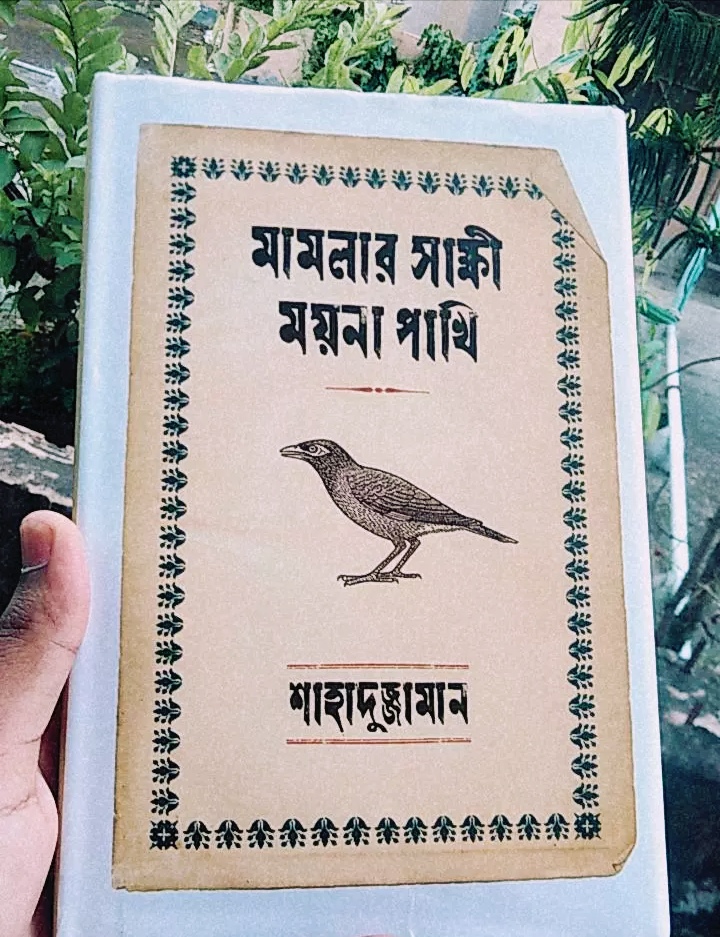 মামলার সাক্ষী
ময়না পাখি
শাহাদুজ্জামান